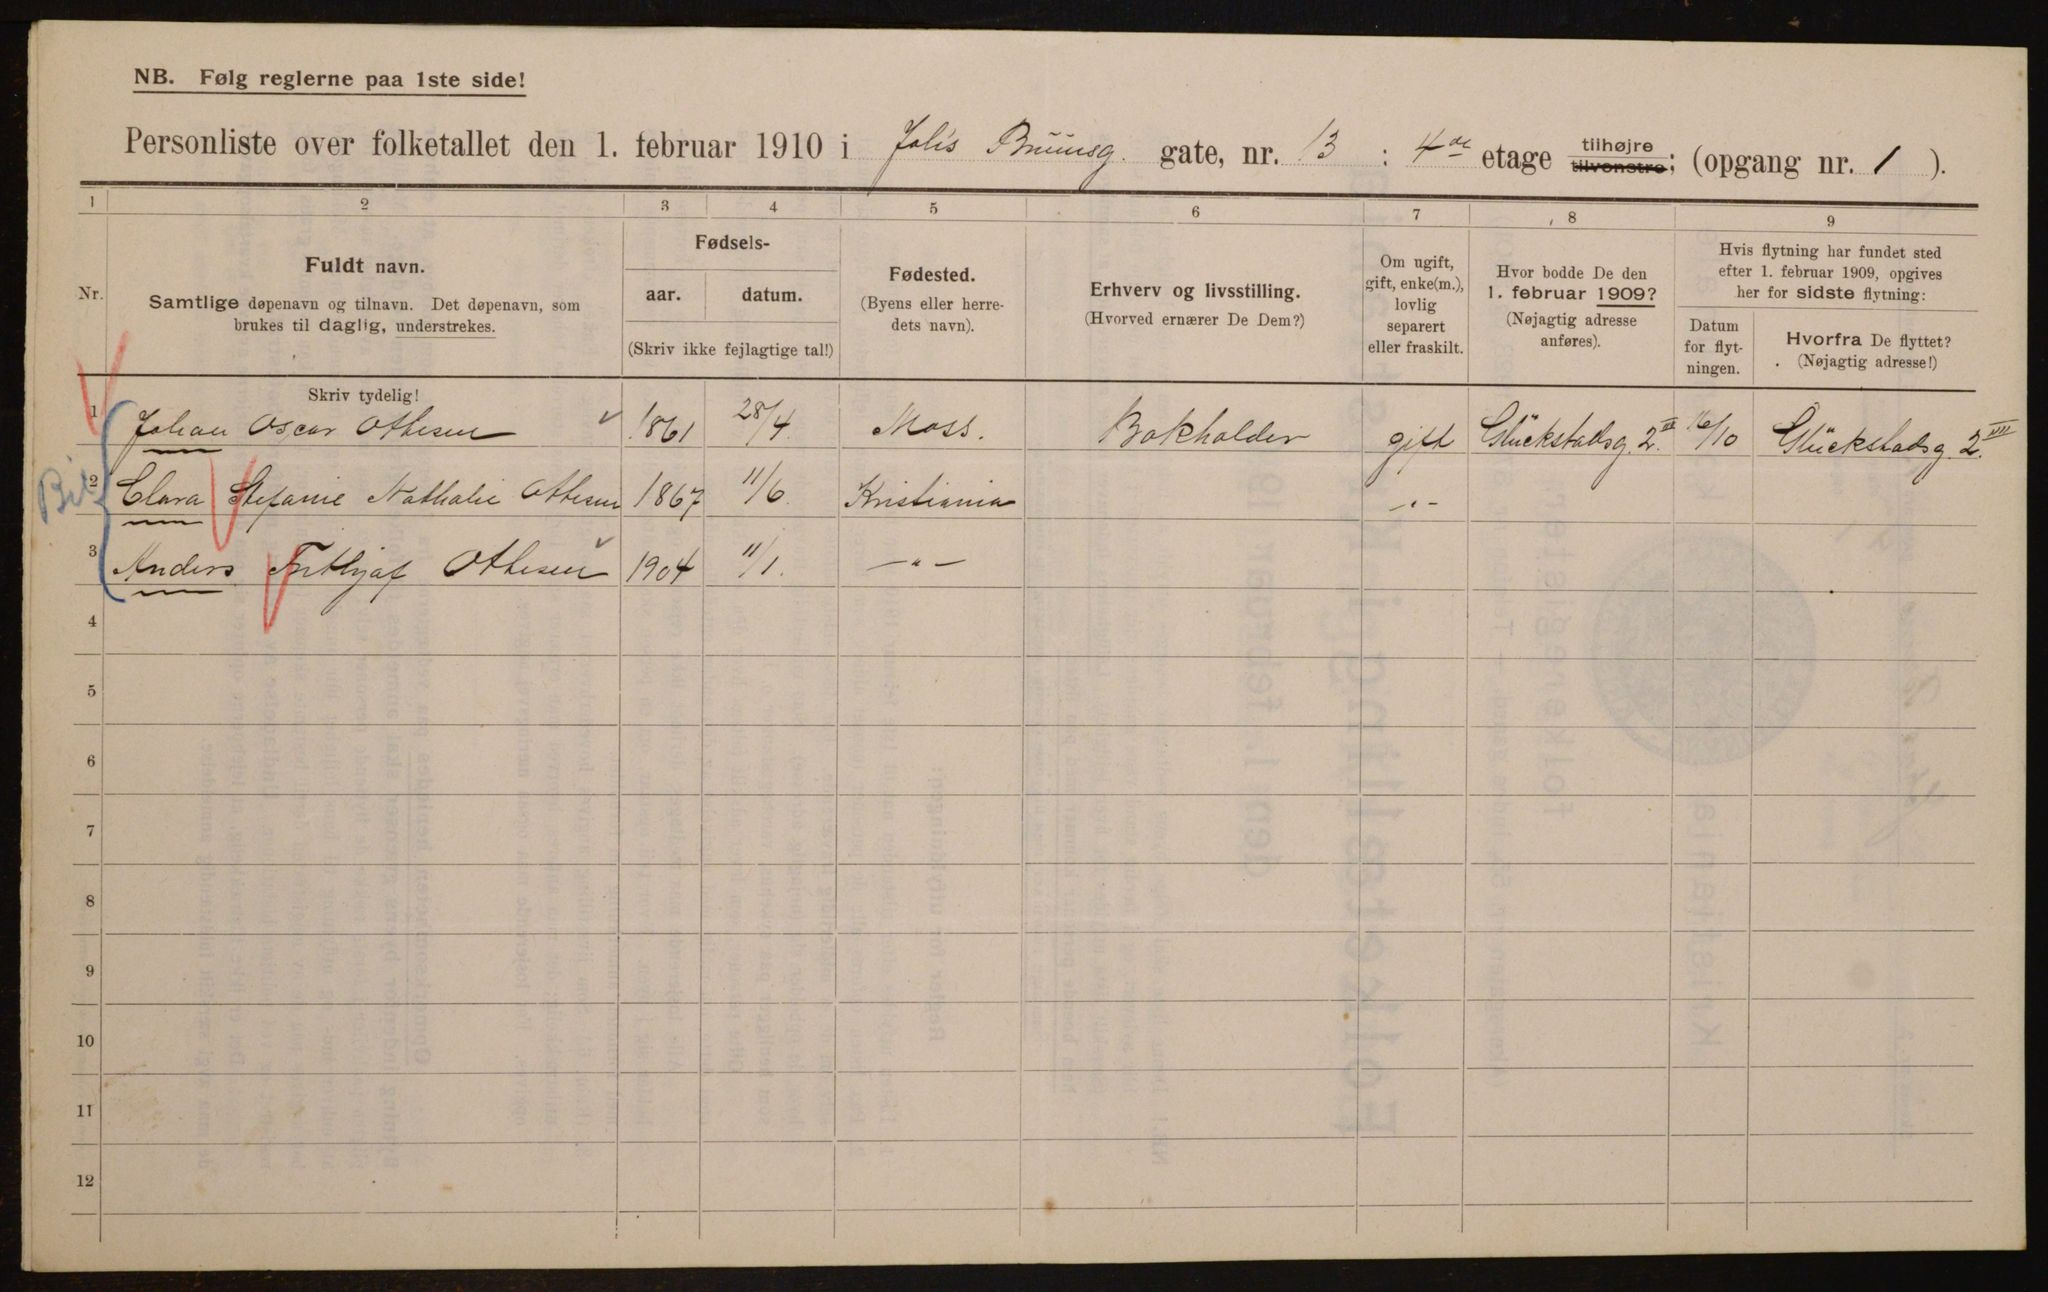 NB. Følg reglerne paa 1ste side!
Personliste over folketallet den 1. februar 1910 i Johs Bruunsg. gate, nr. 13 : 4de etage tilhøjre tilvenstre; (opgang nr. 1 ).
1 2 3 4 5 6 7 8 9
Nr.
Fuldt navn.
Samtlige døpenavn og tilnavn. Det døpenavn, som
brukes til daglig, understrekes.
Skriv tydelig!
Fødsels-
aar. datum.
(Skriv ikke fejlagtige tal!)
Fødested.
(Byens eller herre-
dets navn).
Erhverv og livsstilling.
(Hvorved ernærer De Dem?)
Om ugift,
gift, enke(m.),
lovlig
separert
eller fraskilt.
Hvor bodde De den
1. februar 1909?
(Nøjagtig adresse
anføres).
Hvis flytning har fundet sted
efter 1. februar 1909, opgives
her for sidste flytning:
Datum
for flyt-
ningen.
Hvorfra De flyttet?
(Nøjagtig adresse!)
1 Johan Oscar Othesen 1861 28/4. Moss. Bokholder gift Glückstadsg. 2. III 16/10 Glückstadsg. 2. III
2 Clara Stefanie Nathalie Othesen 1867 11/6. Kristiania -"-
3 Anders Frithjof Othesen 1904 11/1. -"-
4
5
6
7
8
9
10
11
12